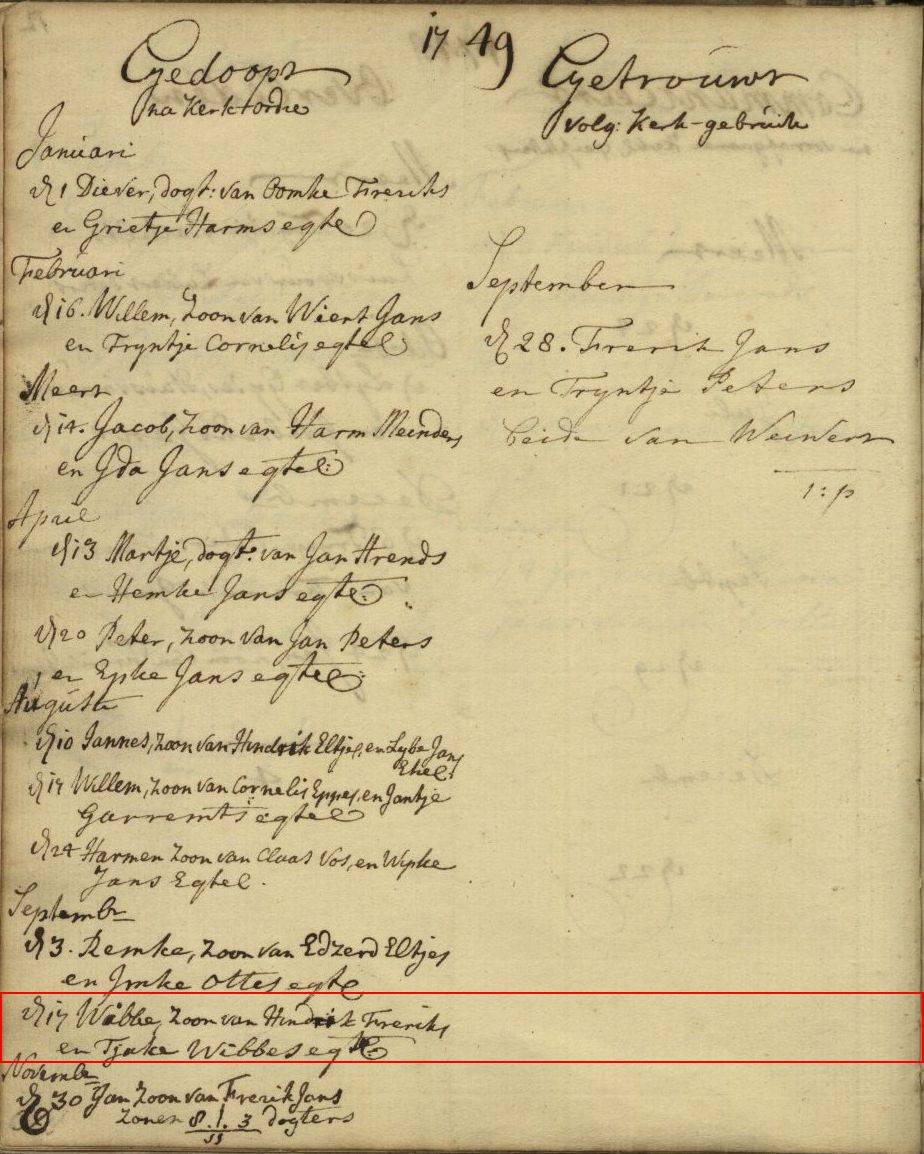 1749
Gedoopt
na Kerk-ordre
Januari
d 1 Diever, dogt: van Pomke Freriks
en Grietje Harms egtel
Februari
d 16. Willem, Zoon van Wiert Jans
en Tryntje Cornelis egtel
Meert
d 14. Jacob, Zoon van Harm Meinders
en Ida Jans egtel:
April
d 13 Martje, dogt: van Jan Arends
en Hemke Jans egtel:
d 20 Peter, Zoon van Jan Peters
en Epke Jans egtel:
Augusti
d 10 Jannes, Zoon van Hindrik Eltjes, en Lybe Jans
Ehel:
d 17 Willem, Zoon van Cornelis Eppes, en Jantje
Garremts egtel
d 24 Harmen Zoon van Claas Vos, en Wipke
Jans Egtel.
Septembr
d 3. Remke, Zoon van Edzerd Eltjes
en Imke Ottes egtel
d 17 Wibbe, Zoon van Hindrik Freriks
en Tjake Wibbes egtel:
Novembr
d 30 Jan Zoon van Frerik Jans
Zonen 8. 1. 3 dogters
11
Getrouwt
volg: Kerk-gebruik
September
d 28. Frerik Jans
en Tryntje Peters
beide van Weiwert
1: p